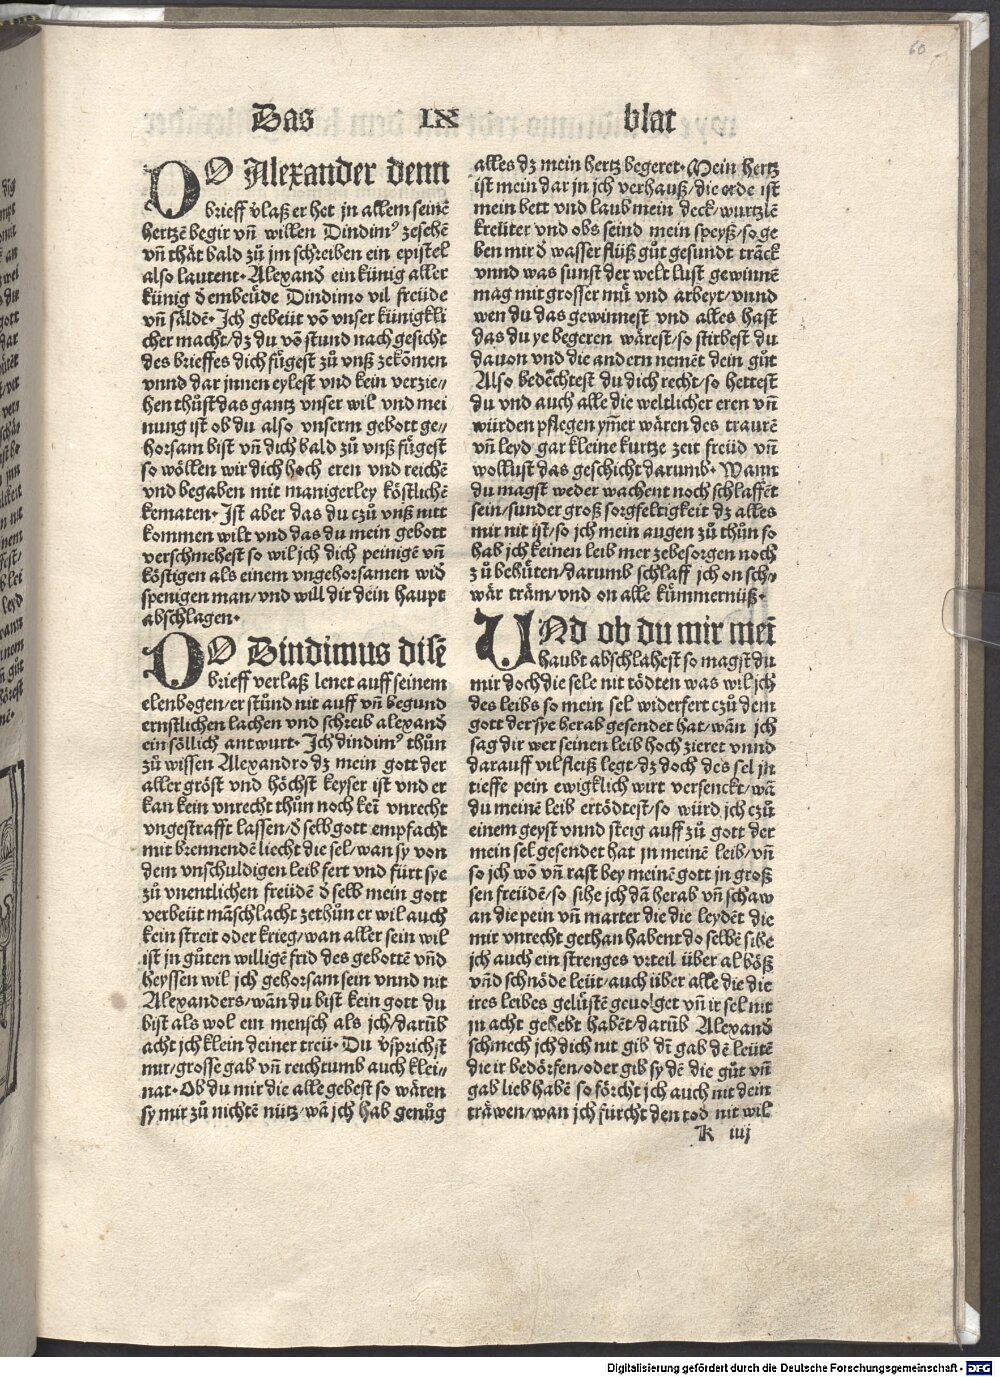 60
Das LX blat
DO Alexander denn
brieff v̈laß er het jn allem seinē
hertzē begir vn̄ willen Dindimꝰ zesehē
vn̄ thät bald zů jm schreiben ein epistel
also lautent. Alexand̄ ein künig aller
künig d̄ embeüde Dindimo vil freüde
vn̄ sälde. Ich gebeüt vō vnser künigkli
cher macht/dz du vō stund nach gesicht
des brieffes dich fügest zů vnß zekōmen
vnnd dar jnnen eylest vnd kein verzie//
hen thůst das gantz vnser wil vnd mei
nung ist ob du also vnserm gebott ge//
horsam bist vn̄ dich bald zů vnß fügest
so wöllen wir dich hoch eren vnd reichē
vnd begaben mit manigerley köstlichē
kematen. Ist aber das du czů vnß nitt
kommen wilt vnd das du mein gebott
verschmehest so wil jch dich peinigē vn̄
köstigen als einem vngehorsamen wid̄
spenigen man/vnd will dir dein haupt
abschlagen.
DO Dindimus disē
brieff verlaß lenet auff seinem
elenbogen/er stůnd nit auff vn̄ begund
ernstlichen lachen vnd schreib alexand̄
ein söllich antwurt. Ich dindimꝰ thůn
zů wissen Alexandro dz mein gott der
aller gröst vnd höchst keyser ist vnd er
kan kein vnrecht thůn noch kei᷑ vnrecht
vngestrafft lassen/d̄ selb gott empfacht
mit brennendē liecht die sel/wan sy von
dem vnschuldigen leib fert vnd fürt sye
zů vnentlichen freüdē d̄ selb mein gott
verbeüt māschlacht zethůn er wil auch
kein streit oder krieg/wan aller sein wil
ist jn gůten willigē frid des gebottē vn̄d
heyssen wil jch gehorsam sein vnnd nit
Alexanders/wān du bist kein gott du
bist als wol ein mensch als jch/darūb
acht jch klein deiner treü. Du v̈sprichst
mir/grosse gab vn̄ reichtumb auch klei/
nat. Ob du mir die alle gebest so wären
sy mir zů nichtē nütz/wā jch hab genůg
alles dz mein hertz begeret. Mein hertz
ist mein dar jn jch verhauß/die erde ist
mein bett vnd laub mein deck/wurtzlē
kreüter vnd obs seind mein speyß/so ge
ben mir d̄ wasser flüß gůt gesundt träck
vnnd was sunst der welt lust gewinnē
mag mit grosser mü̊ vnd arbeyt/vnnd
wen du das gewinnest vnd alles hast
das du ye begeren wärest/so stirbest du
dauon vnd die andern nemēt dein gůt
Also bedēchtest du dich recht/so hettest
du vnd auch alle die weltlicher eren vn̄
würden pflegen ym̄er wären des traurē
vn̄ leyd gar kleine kurtze zeit freüd vn̄
wollust das geschicht darumb. Wann
du magst weder wachent noch schlaffēt
sein/sunder groß sorgfeltigkeit dz alles
mir nit ist/so jch mein augen zů thůn so
hab jch keinen leib mer zebesorgen noch
zů behüten/darumb schlaff jch on sch//
wär träm/vnd on alle kümmernüß.
UNd ob du mir mei᷑
haubt abschlahest so magst du
mir doch die sele nit tödten was wil jch
des leibs so mein sel widerfert czů dem
gott der sye herab gesendet hat/wān jch
sag dir wer seinen leib hoch zieret vnnd
darauff vil fleiß legt/dz doch des sel jn
tieffe pein ewigklich wirt versenckt/wā
du meinē leib ertödtest/so würd jch czů
einem geyst vnnd steig auff zů gott der
mein sel gesendet hat jn meinē leib/vn̄
so jch wō vn̄ rast bey meinē gott jn groß
sen freüdē/so sihe jch dā herab vn̄ schaw
an die pein vn̄ marter die die leydēt die
mir vnrecht gethan habent do selbē sihe
jch auch ein strenges vrteil über al böß
vn̄d schnöde leüt/auch über alle die die
ires leibes gelüstē geuolget vn̄ ir sel nit
jn acht gehebt habēt/darūb Alexand̄
schmech jch dich nit gib di᷑ gab dē leütē
die ir bedörfen/oder gib sy dē die gůt vn̄
gab lieb habē so förcht jch auch nit dein
träwen/wan jch fürcht den tod nit wil
k iiij
Digitalisierung gefördert durch die Deutsche Forschungsgemeinschaft - DFG